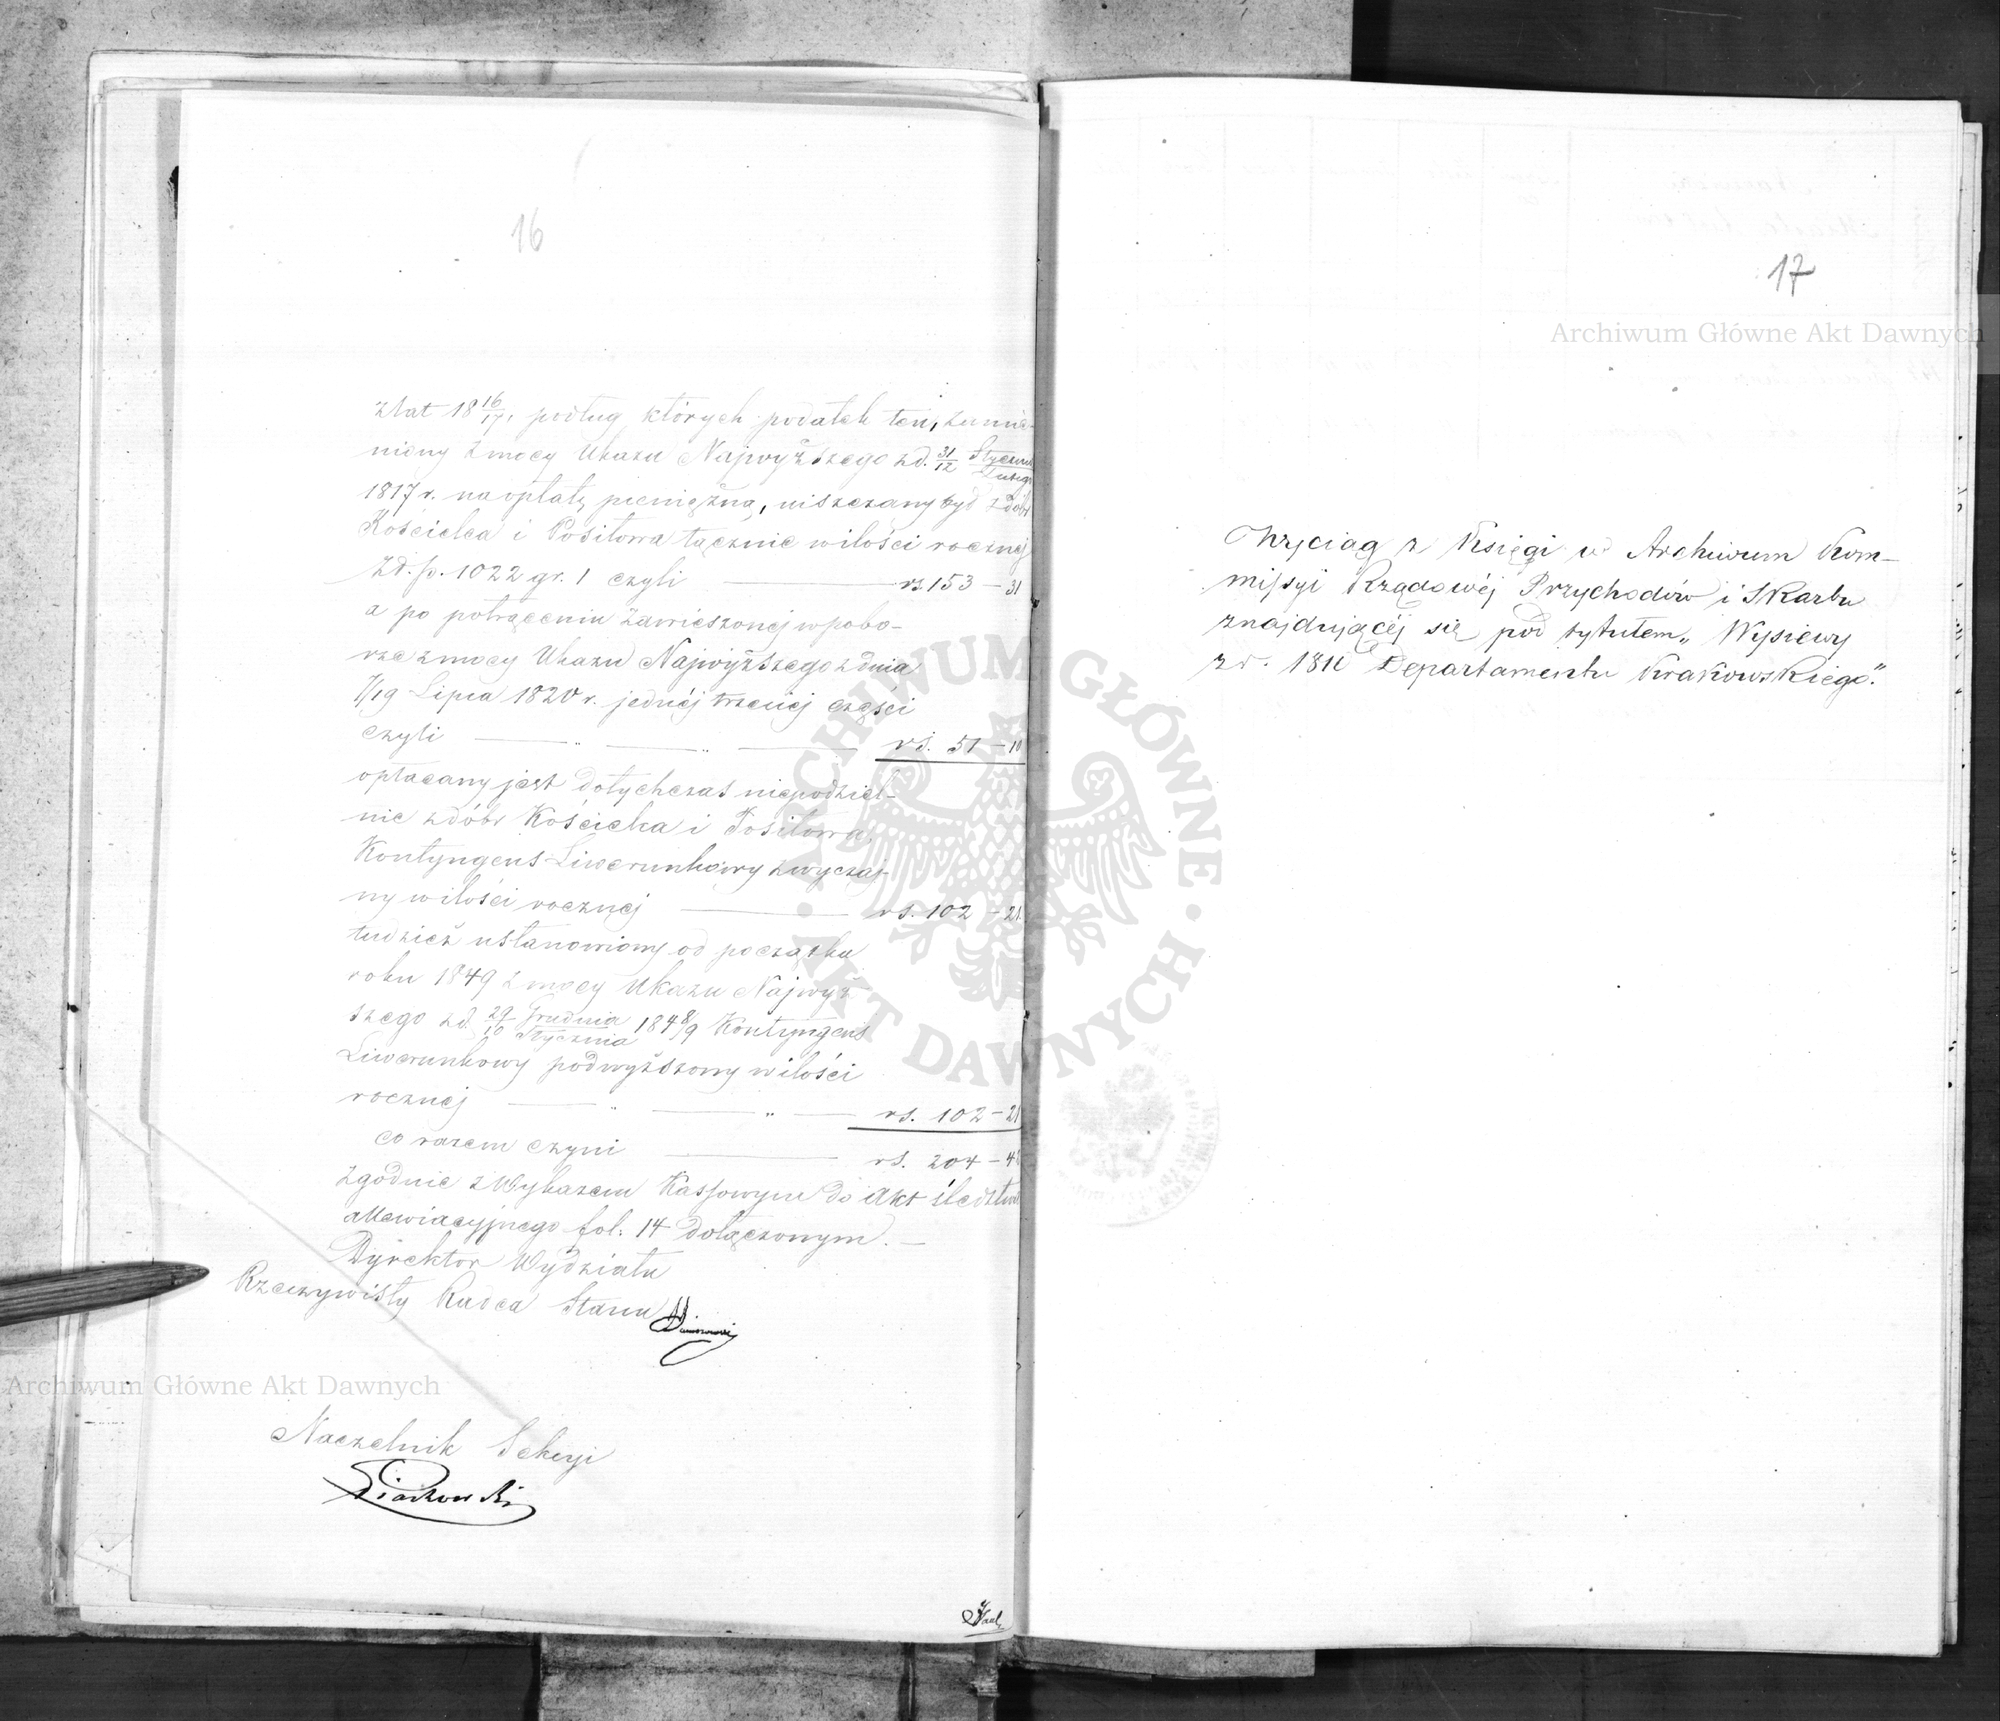 16
z lat 18 16/17, podług których podatek ten, zamie-
niony z mocy Ukazu Najwyższego z d. 31/12 Stycznia/Lutego
1817 r. na opłatę pieniężną, uiszczany był z dóbr
Kościelca i Positowa łącznie w ilości rocznej
Zł. p. 1022 gr. 1 czyli rs 153 – 31
a po potrąceniu zawieszonej w pobo-
rze z mocy Ukazu Najwyższego z dnia
7/19 Lipca 1820 r. jednéj trzeciej części
czyli rs. 51 – 10
opłacany jest dotychczas niepodziel-
nie z dóbr Kościelca i Positowa
Kontyngens Liwerunkowy zwyczaj-
ny w ilości rocznej rs. 102 – 21
tudzież ustanowiony od początku
roku 1849 z mocy Ukazu Najwyż-
szego z d. 29/10 Grudnia/Stycznia 1848/9 Kontyngens
Liwerunkowy podwyższony w ilości
rocznej rs. 102 – 21
co razem czyni rs. 204 – 42
zgodnie z Wykazem Kassowym do Akt śledztwa
allewiacyjnego fol: 14 dołączonym. –
Dyrektor Wydziału
Rzeczywisty Radca Stanu
Naczelnik Sekcyi
Piaskowski
17
Wyciąg z Księgi w Archiwum Kom-
missyi Rządowéj Przychodów i Skarbu
znajdującéj się pod tytułem „Wysiewy
z r. 1811 Departamentu Krakowskiego."
Archiwum Główne Akt Dawnych
Archiwum Główne Akt Dawnych
ARCHIWUM GŁÓWNE
AKT DAWNYCH